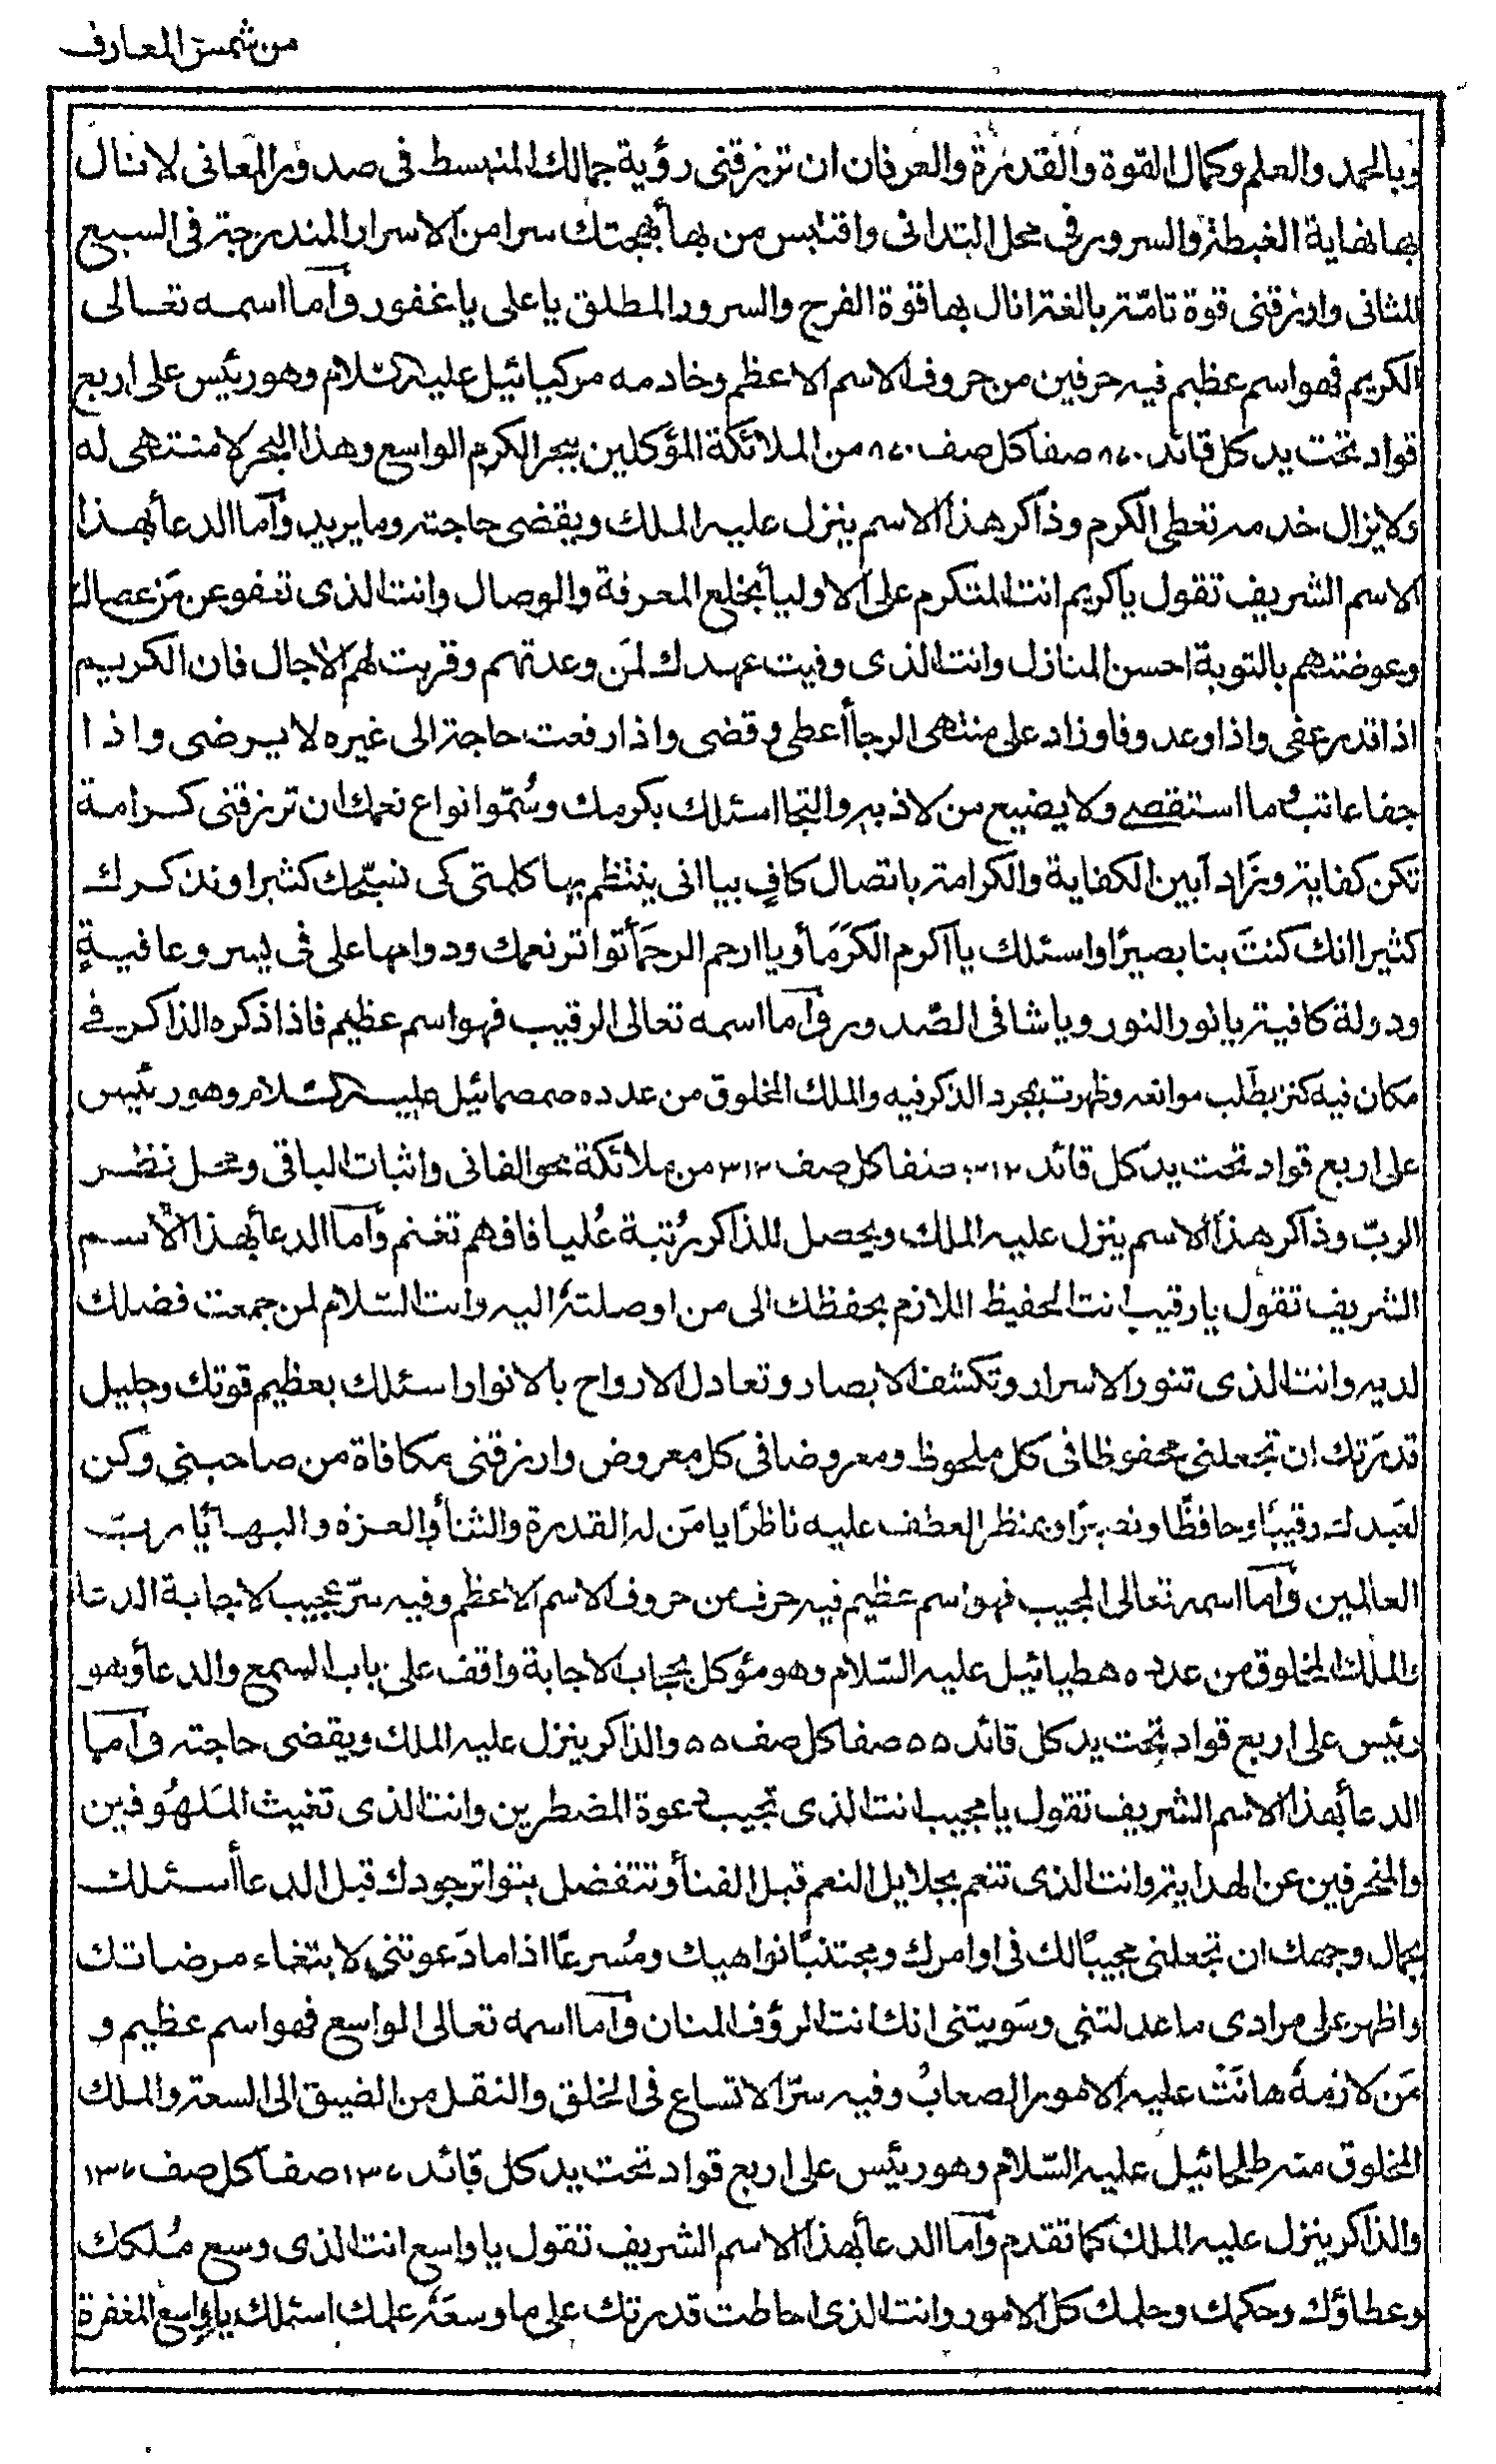 من شمس المعارف
وبالحمد والعلم وكمال القوة والقدرة والعرفان ان ترزقنى رؤية جمالك المنبسط فى صدور المعانى لانال
بها نهاية الغبطة والسرور فى محل التدانى واقتبس من بهأ بهجتك سرا من الاسرار المندرجة فى السبع
المثانى وارزقنى قوة تامّة بالغة انال بها قوة الفرح والسرور المطلق يا على يا غفور وأما اسمه تعالى
الكريم فهو اسم عظيم فيه حرفين من حروف الاسم الاعظم وخادمه مركيائيل عليه السّلام وهو رئيس على اربع
قواد تحت يد كل قائد ٨٤٠ صفا كل صف ٨٤٠ من الملائكة المؤكلين ببحر الكرم الواسع وهذا البحر لا منتهى له
ولا يزال خدمه تعطى الكرم وذاكر هذا الاسم ينزل عليه الملك ويقضى حاجته وما يريد وأما الدعأ بهذا
الاسم الشريف تقول يا كريم انت المتكرم على الاوليأ بخلع المعرفة والوصال وانت الذى تعفو عن مَن عصاك
وعوضتهم بالتوبة احسن المنازل وانت الذى وفيت عهدك لمَن وعدتهم وقربت لهم الآجال فان الكريم
اذا قدر عفى واذا وعد وفا وزاد على منتهى الرجأ أعطى وقضى واذا رفعت حاجة الى غيره لا يرضى واذا
جفا عاتب وما استقصے ولا يضيع من لاذ به والتجا اسئلك بكرمك وسُمّو انواع نعمك ان ترزقنى كرامة
تكن كفاية وبزاد آبين الكفاية والكرامة باتصال كافٍ بيا انى ينتظم بها كلمتى كى نسبّحك كثيرا ونذكرك
كثيرا انك كنتَ بنا بصيرًا واسئلك يا اكرم الكرَمَأ ويا ارحم الرحمَأ تواتر نعمك ودوامها على فى يسر وعافيةٍ
ودولة كافية يا نور النور ويا شافى الصّدور وأما اسمه تعالى الرقيب فهو اسم عظيم فاذا ذكره الذاكر فے
مكان فيه كنز بطلب موانعه وظهرت بمجرد الذكر فيه والملك المخلوق من عدده صمصمائيل عليه السّلام وهو رئيس
على اربع قواد تحت يد كل قائد ٣١٢ صفا كل صف ٣١٢ من ملائكة محو الفانى واثبات الباقى ومحل نظر
الربّ وذاكر هذا الاسم ينزل عليه الملك ويحصل للذاكر رُتبة عُليا فافهم تغنم وأما الدعأ بهذا الاسم
الشريف تقول يا رقيب انت الحفيظ اللازم بحفظك الى من اوصلتهُ اليه وانت السّلام لمن جمعت فضلك
لديه وانت الذى تنور الاسرار وتكشف الابصار وتعادل الارواح بالانوار اسئلك بعظيم قوتك وجليل
قدرَتك ان تجعلنى محفوظا فى كل ملحوظ ومعروضا فى كل معروض وارزقنى مكافاة من صاحبنى وكن
لعَبدك رقيبًا وحافظًا ونصيرًا وبمنظر العطف عليه ناظرًا يا مَن له القدرة والثنأ والعزة والبهأ يا ربّ
العالمين وأما اسمه تعالى المجيب فهو اسم عظيم فيه حرف من حروف الاسم الاعظم وفيه سرّ عجيب لاجابة الدعا
والملك المخلوق من عدده هطيائيل عليه السّلام وهو مؤكل بحجاب الاجابة واقف على باب السمع والدعأ وهو
رئيس على اربع قواد تحت يد كل قائد ٥٥ صفا كل صف ٥٥ والذاكر ينزل عليه الملك ويقضى حاجته وأما
الدعأ بهذا الاسم الشريف تقول يا مجيب انت الذى تجيب دعوة المضطرين وانت الذى تغيث المَلهُوفين
والمنحرفين عن الهداية وانت الذى تنعم بجلايل النعم قبل الفنأ وتتفضل بتواتر جودك قبل الدعأ أسئلك
بجمال وجهك ان تجعلنى مجيبًا لك فى اوامرك ومجتنبًا نواهيك ومُسرعًا اذا ما دَعوتنى لابتغاء مرضاتك
واظهر على مرادى ما عدلتنى وسَويتنى انك انت الرؤف المنان وأما اسمه تعالى الواسع فهو اسم عظيم و
مَن لازمهُ هانَتْ عليه الامور الصعابُ وفيه سرّ الاتساع فى الخلق والنقل من الضيق الى السعة والملك
المخلوق منه طلحائيل عليه السّلام وهو رئيس على اربع قواد تحت يد كل قائد ١٣٧ صفا كل صف ١٣٧
والذاكر ينزل عليه الملك كما تقدم وأما الدعأ بهذا الاسم الشريف تقول يا واسع انت الذى وسع مُلكك
وعطاؤك وحكمك وحلمك كل الامور وانت الذى احاطت قدرتك على ما وسعَهُ علمك اسئلك يا واسع المغفرة